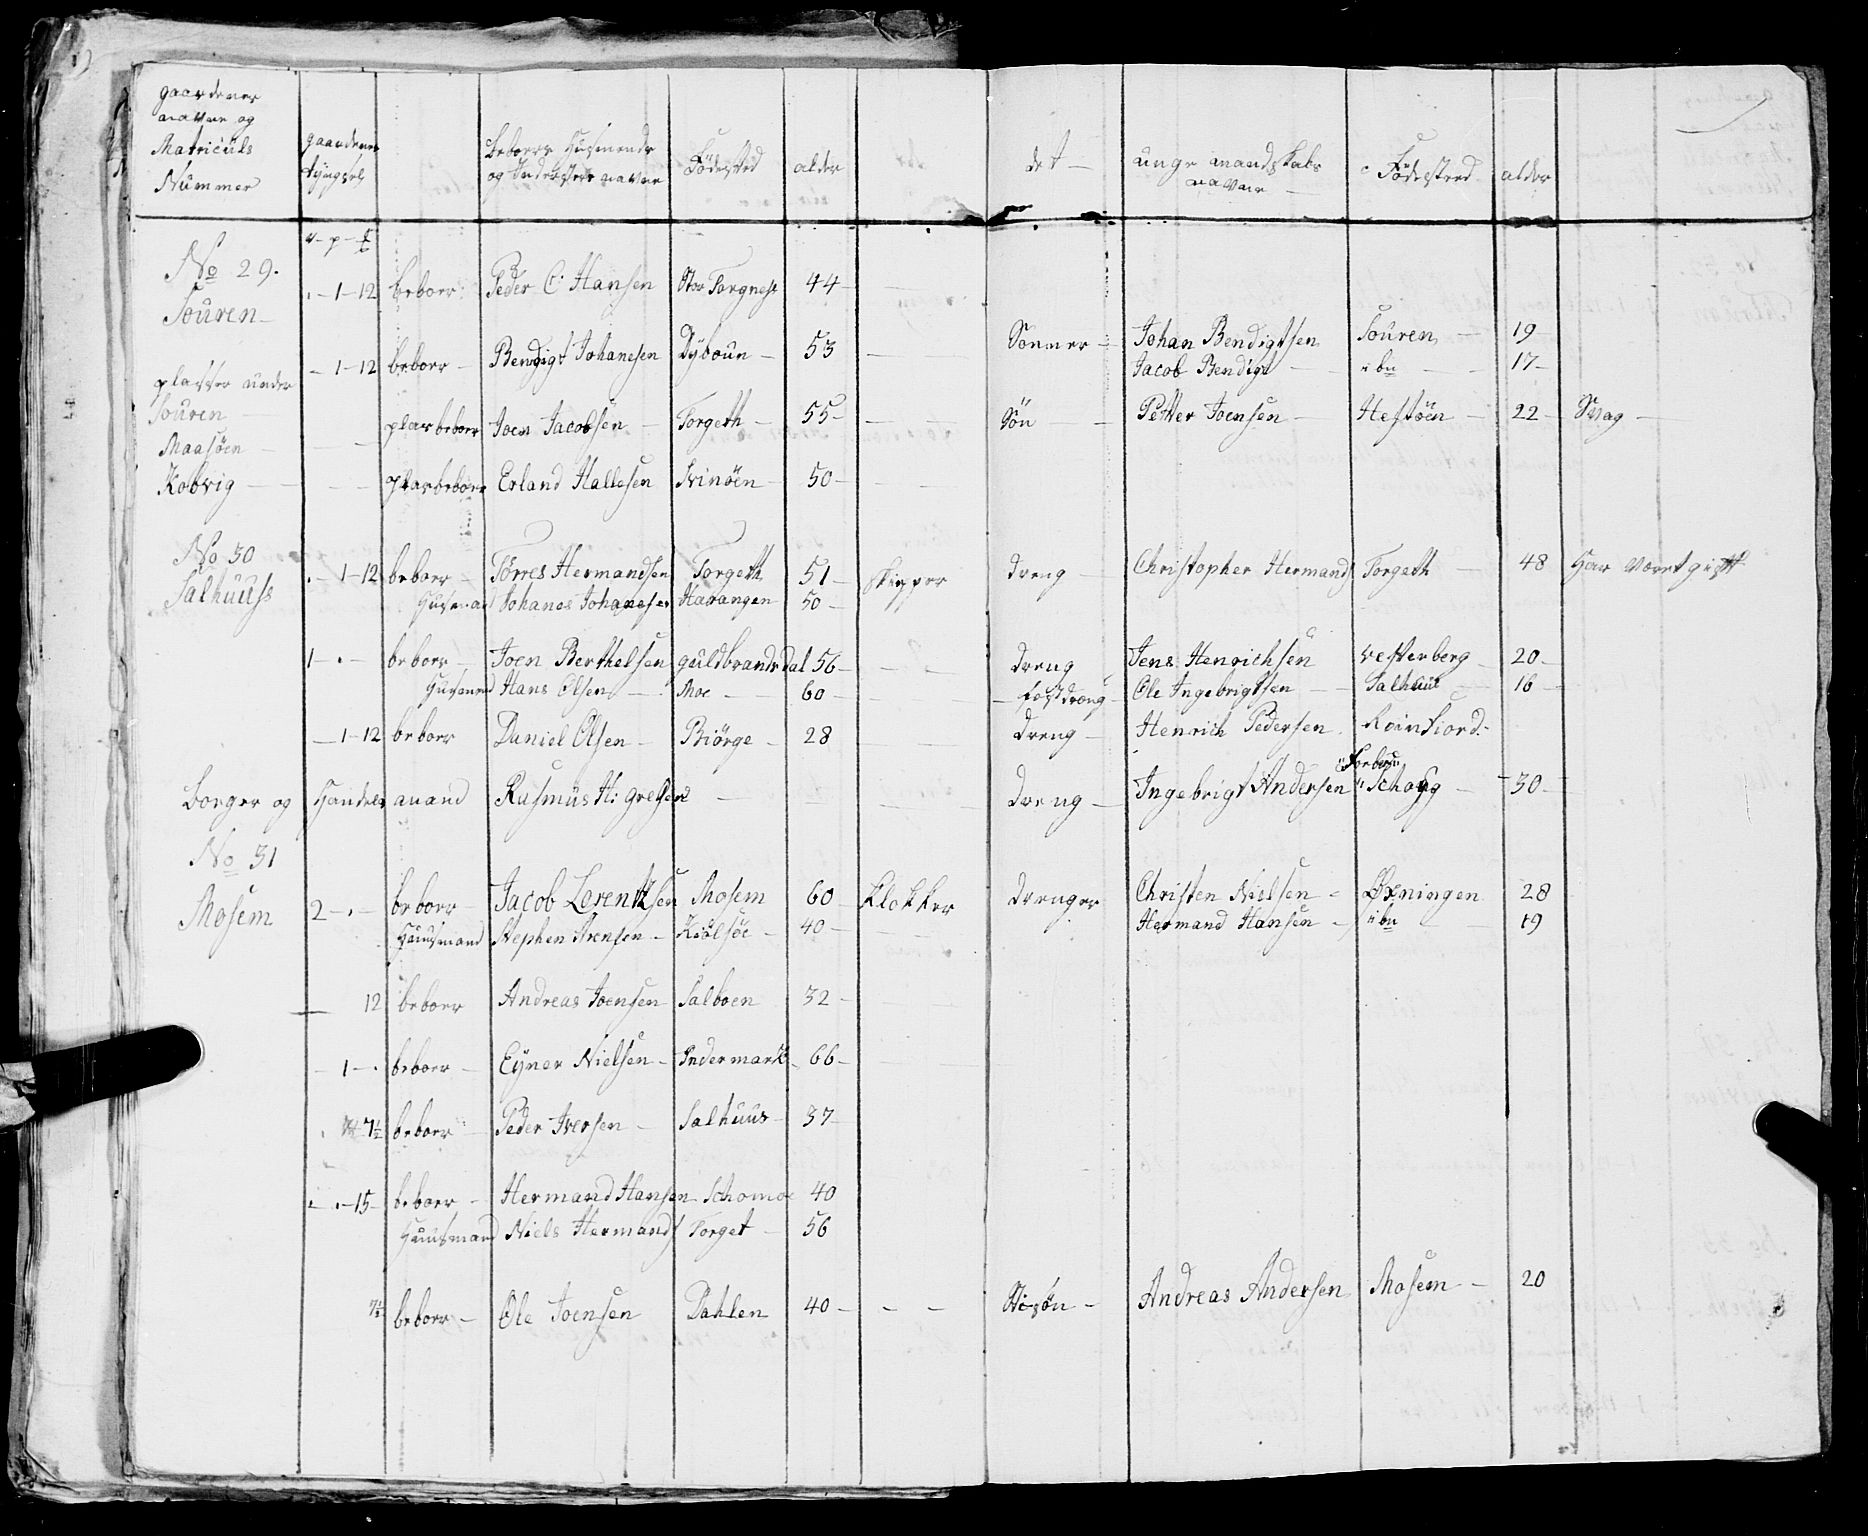 gaardenes navne og Matriculs Nummer | gaardenes | beboere Husmænds og Inderster navne | Födested | alder | det | unge mandskabs navne | Födested | alder
v - p - 
No 29. Souren | . - 1 - 12 | beboer | Peder C Hansen | Stor Torgnes | 44
- 1 - 12 | beboer | Bendigt Johanesen | Dyboun | 53 | Sönner | Johan Bendigtsen | Souren | 19
Jacob Bendigt | ibn | 17
plasser under Souren
Maasöen | plasbeboer | Joen Jacobsen | Torgeth | 55 | Sön | Petter Joensen | Hestöen | 22 | Svag
Kobvig | plasbeboer | Erland Hallesen | Svinöen | 50
No 30 Salhuus | . - 1 - 12 | beboer | Törres Hermandsen | Torgeth | 51 | Skipper | dreng | Christopher Hermands | Torgeth | 48 | Har Været gift
Husmand | Johanes Johanesen | Harangen | 50
1 - . - | beboer | Joen Berthelsen | guldbrandsdal | 56 | dreng | Jens Henrichsen | vesterberg | 20
Husmand | Hans Olsen | Moe | 60 | fostdreng | Ole Ingebrigtsen | Salhuus | 16
- 1 - 12 | beboer | Daniel Olsen | Biörge | 28 | dreng | Henrich Pedersen | Reinfiord
Borger og Handels mand | Rasmus H: | dreng | Ingebrigt Andersen | 30
No 31
Mosem | 2 - . - | beboer | Jacob Lorentzsen | Mosem | 60 | Klokker | drenger | Christen Nielsen | Öxningen | 28
Huusmand | Stephen Arensen | Kiölsöe | 40 | Hermand Hansen | ibn | 19
12 | beboer | Andreas Joensen | Salboen | 32
- 1 - . | beboer | Eyner Nielsen | Indermark | 66
7½ | beboer | Peder Iversen | Salhuus | 37
. - . - 15 | beboer | Hermand Hansen | Schomoe | 40
Huusmand | Niels Hermands | Torget | 56
7½ | beboer | Ole Joensen | Dahlen | 40 | Stifsön | Andreas Andersen | Mosem | 20